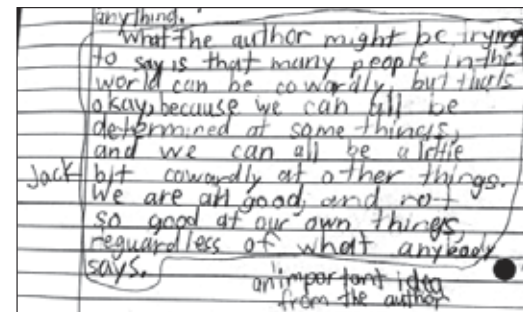 anything.
what the author might be trying
to say is that many people in the
world can be cowardly, but thats
okay, because we can all be
determined at some things,
and we can all be a little
Jack bit cowardly at other things.
We are all good, and not
so good at our own things,
reguardless of what anybody
says.
an important idea
from the author